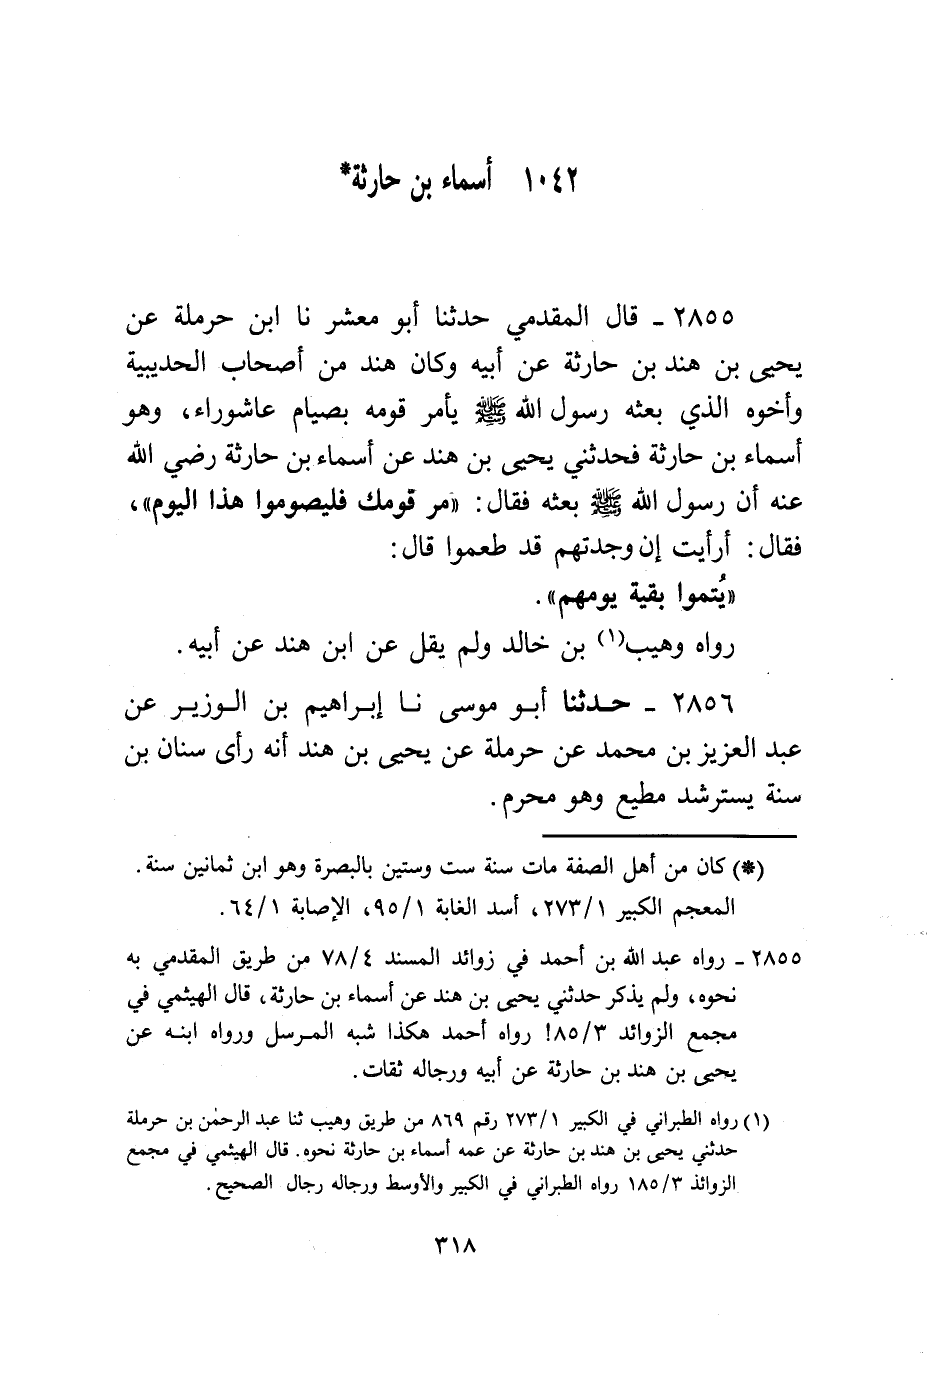 ١٠٤٢ أسماء بن حارثة*
٢٨٥٥ ـ قال المقدمي حدثنا أبو معشر نا ابن حرملة عن
يحيى بن هند بن حارثة عن أبيه وكان هند من أصحاب الحديبية
وأخوه الذي بعثه رسول الله ﷺ يأمر قومه بصيام عاشوراء، وهو
أسماء بن حارثة فحدثني يحيى بن هند عن أسماء بن حارثة رضي الله
عنه أن رسول الله ﷺ بعثه فقال: «مر قومك فليصوموا هذا اليوم»،
فقال: أرأيت إن وجدتهم قد طعموا قال:
«يُتموا بقية يومهم».
رواه وهيب(١) بن خالد ولم يقل عن ابن هند عن أبيه.
٢٨٥٦ ـ حدثنا أبو موسى نا إبراهيم بن الوزير عن
عبد العزيز بن محمد عن حرملة عن يحيى بن هند أنه رأى سنان بن
سنة يسترشد مطيع وهو محرم.
(*) كان من أهل الصفة مات سنة ست وستين بالبصرة وهو ابن ثمانين سنة.
المعجم الكبير ٢٧٣/١، أسد الغابة ٩٥/١، الإصابة ٦٤/١.
٢٨٥٥ ـ رواه عبد الله بن أحمد في زوائد المسند ٧٨/٤ من طريق المقدمي به
نحوه، ولم يذكر حدثني يحيى بن هند عن أسماء بن حارثة، قال الهيثمي في
مجمع الزوائد ٨٥/٣! رواه أحمد هكذا شبه المرسل ورواه ابنه عن
يحيى بن هند بن حارثة عن أبيه ورجاله ثقات.
(١) رواه الطبراني في الكبير ٢٧٣/١ رقم ٨٦٩ من طريق وهيب ثنا عبد الرحمٰن بن حرملة
حدثني يحيى بن هند بن حارثة عن عمه أسماء بن حارثة نحوه. قال الهيثمي في مجمع
الزوائذ ١٨٥/٣ رواه الطبراني في الكبير والأوسط ورجاله رجال الصحيح.
٣١٨